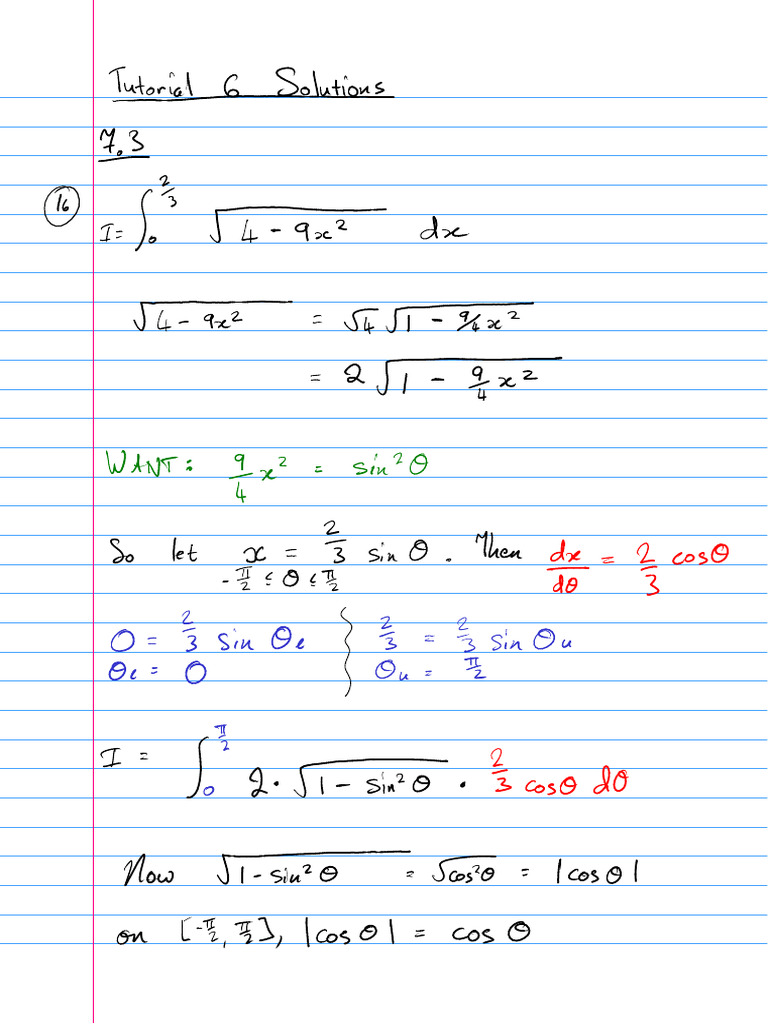 Tutorial 6 Solutions
7.3
(16) I = ∫₀^{2/3} √(4 - 9x²) dx
√(4 - 9x²) = √4 √(1 - 9/4 x²)
= 2 √(1 - 9/4 x²)
WANT: 9/4 x² = sin²θ
So let x = 2/3 sin θ. Then dx/dθ = 2/3 cosθ
-π/2 ≤ θ ≤ π/2
0 = 2/3 sin θ_ℓ    2/3 = 2/3 sin θ_u
θ_ℓ = 0    θ_u = π/2
I = ∫₀^{π/2} 2 · √(1 - sin²θ) · 2/3 cosθ dθ
Now √(1 - sin²θ) = √(cos²θ) = |cos θ|
on [-π/2, π/2], |cos θ| = cos θ